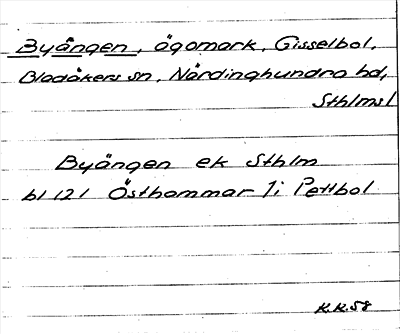 Byången, ägomark, Gisselbol,
Bladåkers sn, Närdinghundra hd,
Sthlms l
Byängen ek Sthlm
bl 121 Östhammar 1; Pettbol
K.K. 58